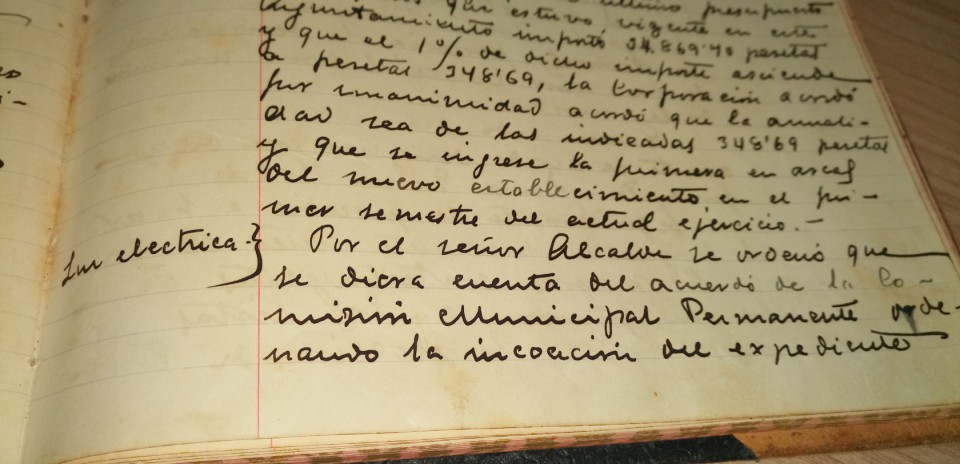 que estuvo vigente en este
Ayuntamiento importó 34.869'40 pesetas
y que el 1% de dicho importe asciende
a pesetas 348'69, la Corporación acordó
por unanimidad acordó que la anuali-
dad sea de las indicadas 348'69 pesetas
y que se ingrese la primera en arcas
del nuevo establecimiento en el pri-
mer semestre del actual ejercicio.-
Luz electrica.-}
Por el señor Alcalde se ordenó que
se diera cuenta del acuerdo de la Co-
misión Municipal Permanente orde-
nando la incoación del expediente